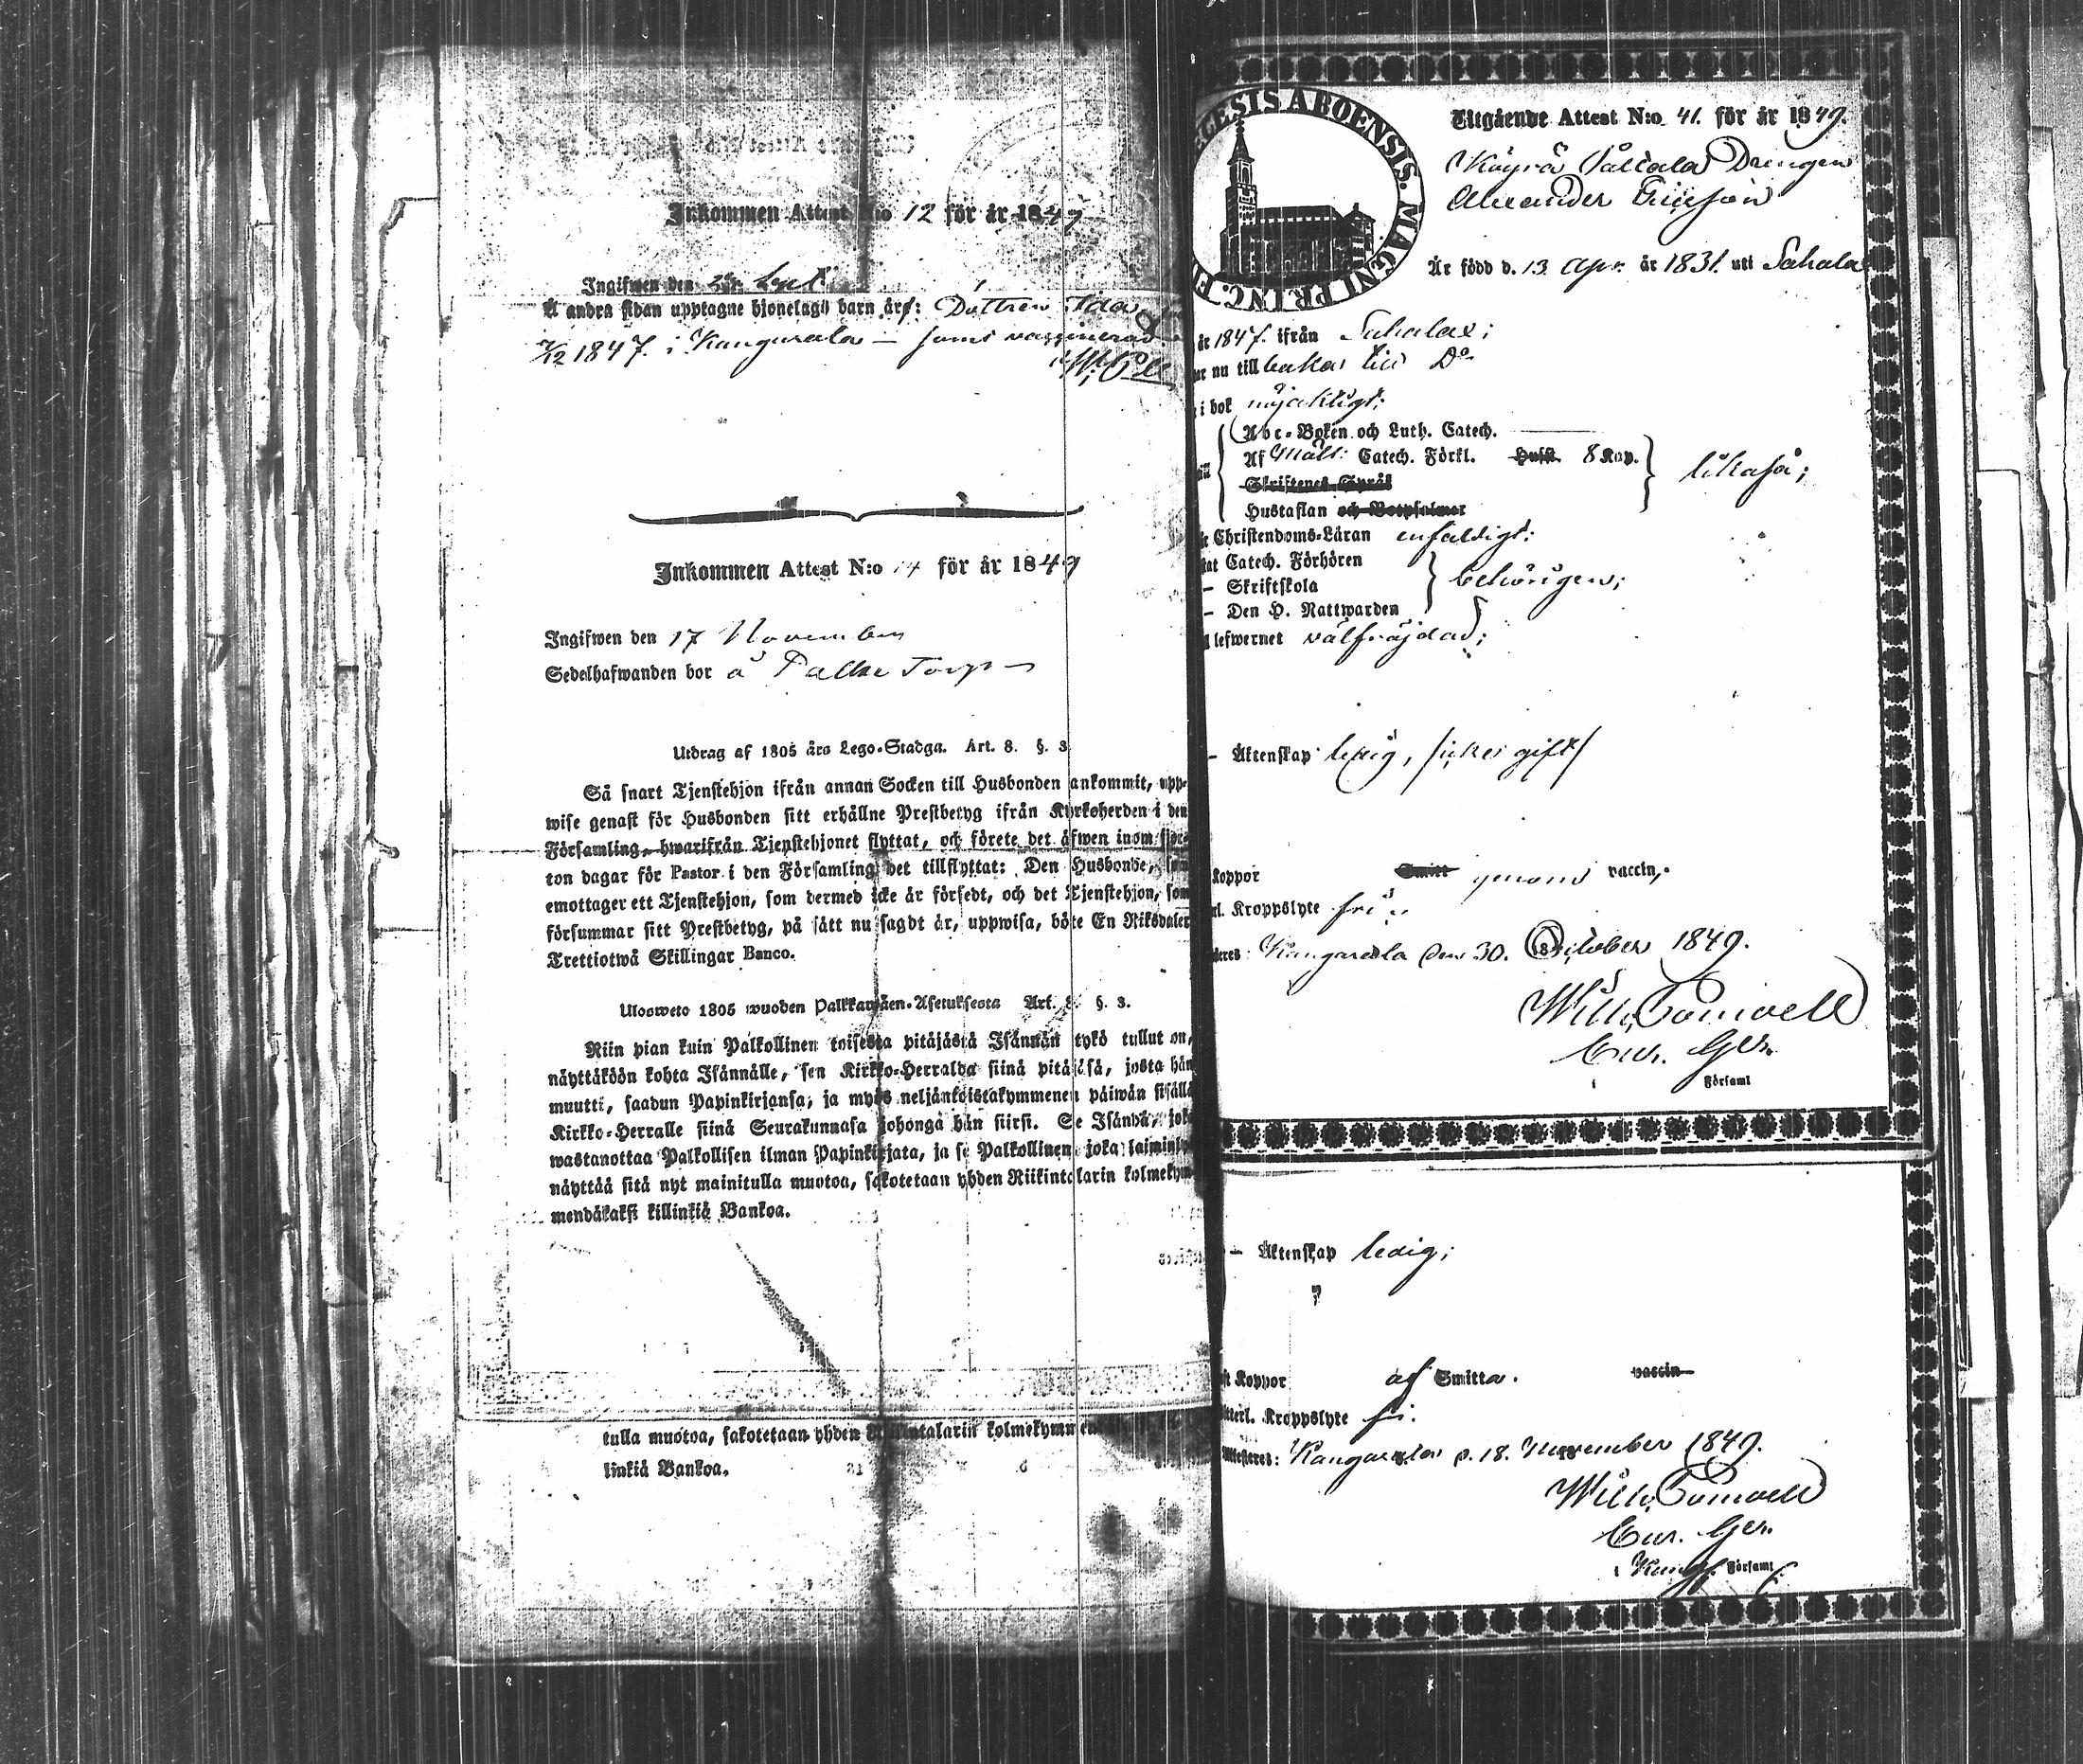 Inkommen Attest N:o 12 för år 1849
Ingifwen den
Å andra sidan upptagne hjonelags barn äro: Dottren Ida
7/12 1847. i Kangasala — vaccinerad.
Inkommen Attest N:o 14 för år 1849
Ingifwen den 17 November
Sedelhafwanden bor å Palke Torp —
Utdrag af 1805 års Lego-Stadga. Art. 8. §. 3.
Så snart Tjenstehjon ifrån annan Socken till Husbonden ankommit, upp-
wise genast för Husbonden sitt erhållne Prestbetyg ifrån Kyrkoherden i den
Församling, hwarifrån Tjenstehjonet flyttat, och förete det äfwen inom fjor-
ton dagar för Pastor i den Församling det tillflyttat: Den Husbonde, som
emottager ett Tjenstehjon, som dermed icke är försedt, och det Tjenstehjon, som
försummar sitt Prestbetyg, på sätt nu sagdt är, uppwisa, böte En Riksdaler
Trettiotwå Skillingar Banco.
Ulosweto 1805 wuoden Palkkawäen-Asetuksesta Art. 8. §. 3.
Niin pian kuin Palkollinen toisesta pitäjästä Isännän tykö tullut on,
näyttäköön kohta Isännälle, sen Kirkko-Herralda siinä pitäjäsä, josta hän
muutti, saadun Papinkirjansa, ja myös neljäntoistakymmenen päiwän sisällä
Kirkko-Herralle siinä Seurakunnasa johonga hän siirsi. Se Isändä, joka
wastanottaa Palkollisen ilman Papinkirjata, ja se Palkollinen joka laiminlyö
näyttää sitä nyt mainitulla muotoa, sakotetaan yhden Riikintalarin kolmekym-
mendäkaksi killinkiä Bankoa.
tulla muotoa, sakotetaan yhden Riikintalarin kolmekymmen
linkiä Bankoa.
ECESIS ABOENSIS. MAGNI PRINC. F
Utgående Attest N:o 41. för år 1849.
Drengen
Alexander Ericsson
Är född d. 13. Apr. år 1831. uti Sahalax
år 1847. ifrån Sahalax;
ar nu tillbaka till D:o
i bok nöjaktigt;
Abc-Boken och Luth. Catech.
Af Catech. Förkl. Huft. 8 Kap.
Skriftenes Språk
likaså;
Hustaflan och Botpsalmer
Christendoms-Läran enfaldigt;
tat Catech. Förhören
— Skriftskola
behörigen;
— Den H. Nattwarden
lefwernet välfräjdad;
— Äktenskap ledig, /icke gift/
Koppor Smitt genom vaccin.
rl. Kroppslyte fri.
Kangasala den 30. October 1849.
Församl
— Äktenskap ledig;
Koppor af Smitta. vaccin
tterl. Kroppslyte fri.
Attesteres: Kangasala d. 18. November 1849.
Församl.